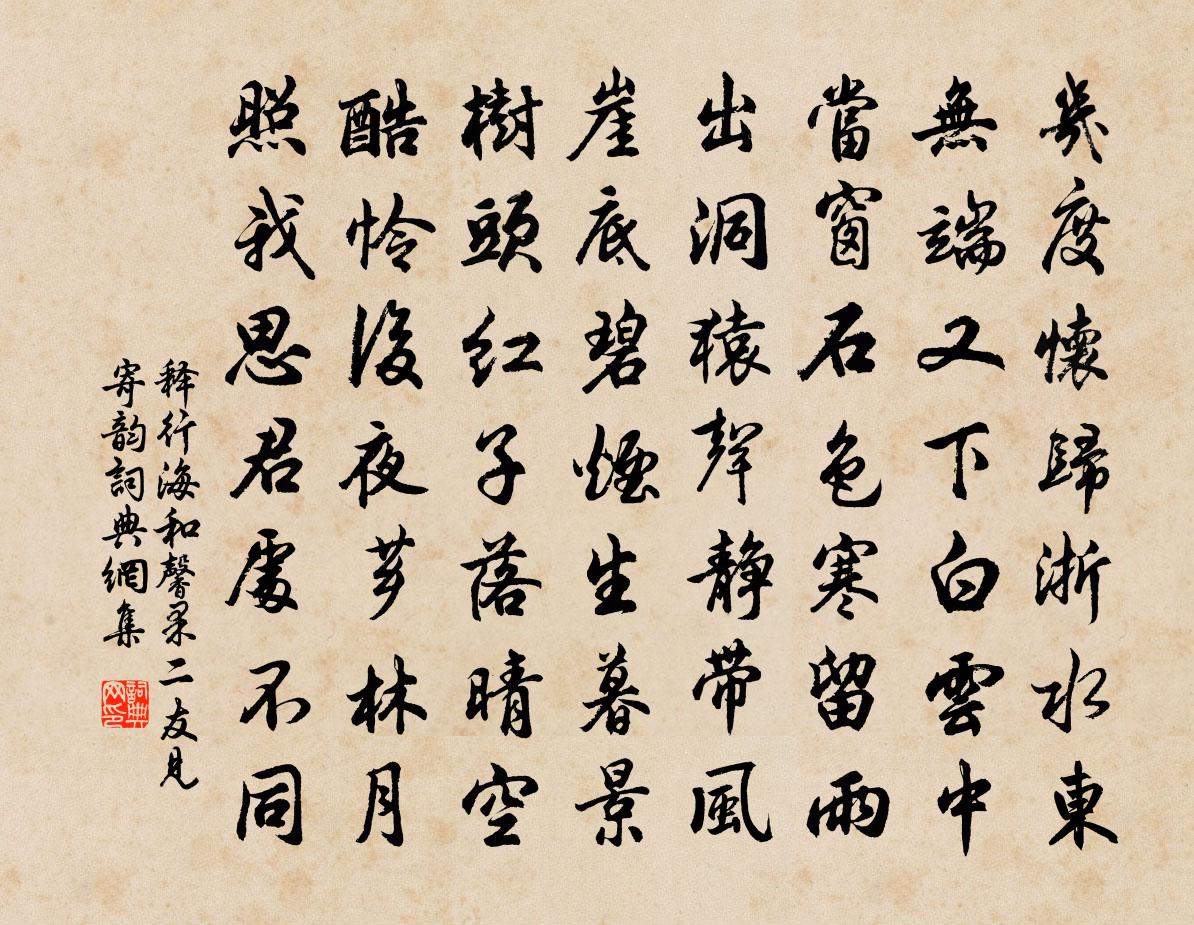 幾度懷歸浙水東
無端又下白雲中
當窗石色寒留雨
出洞猿聲静帶風
崖底碧煙生暮景
樹頭紅子落晴空
酷怜後夜芗林月
照我思君處不同
释行海和馨杲二友見
寄韵詞典網集
詞典
网印